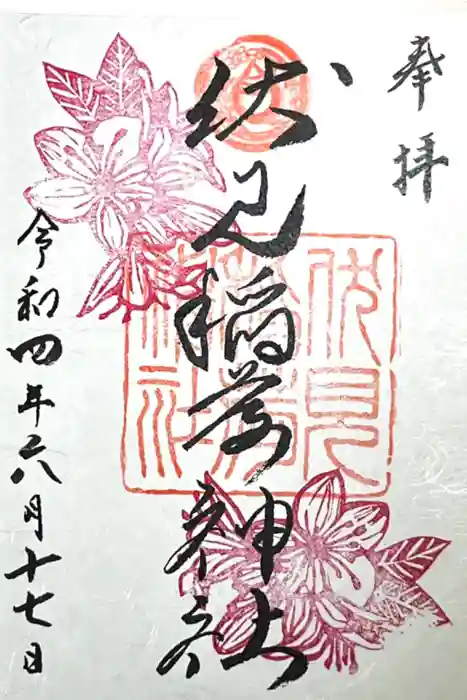 奉拝
伏見稲荷神社
令和四年六月十七日
伏見
稲荷
神社